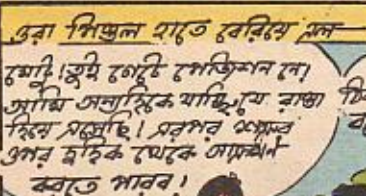 ওরা পিস্তুল হাতে বেরিয়ে এল
মোটু! তুই গেটে পোজিশন নে!
আমি অন্যদিকে যাচ্ছি যে রাস্তা
দিয়ে এসেছি! এরপর ওদের
ওপর দুদিক থেকে আক্রমণ
করতে পারব!